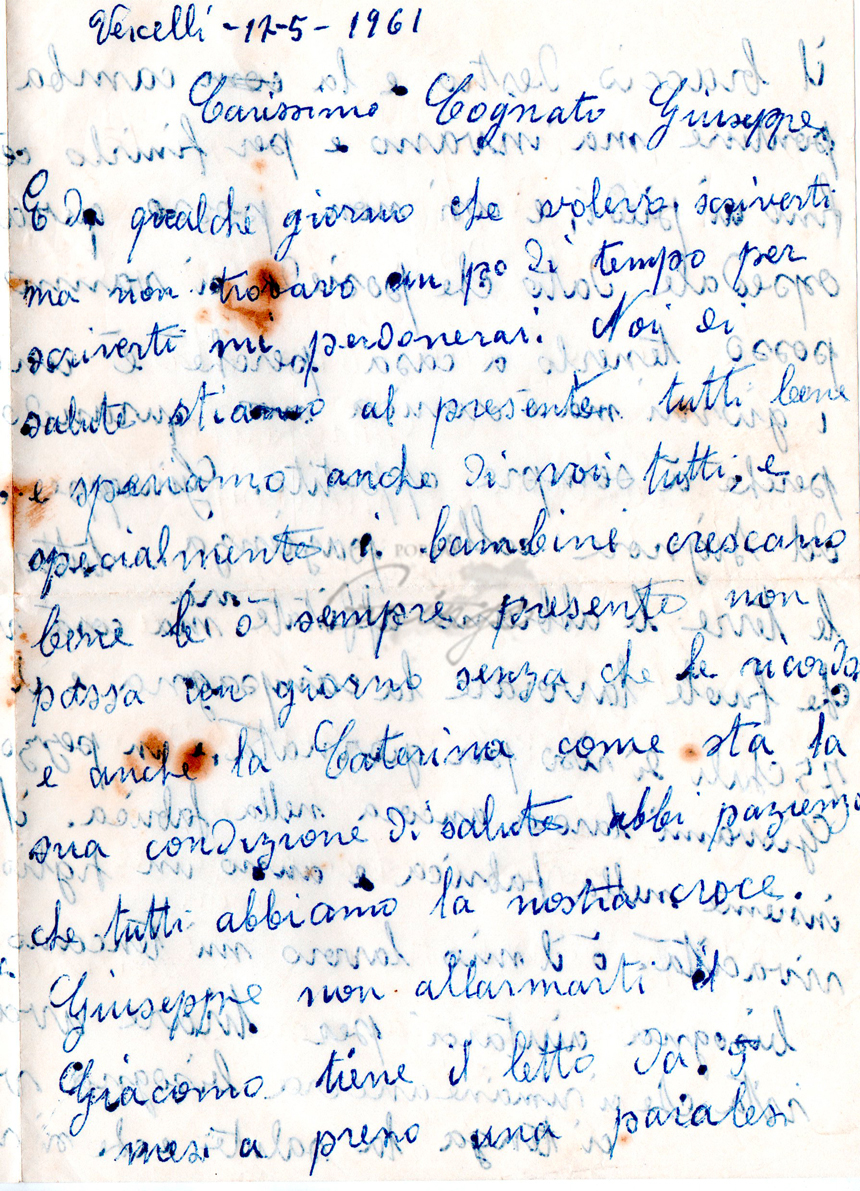 Vercelli - 17-5 - 1961
Carissimo Cognato Giuseppe,
E da qualche giorno che volevo scriverti
ma non trovavo un po di tempo per
scriverti mi perdonerai. Noi di
salute stiamo al presente tutti bene
e speriamo anche di voi tutti, e
specialmente i bambini crescano
bene li ò sempre presente non
passa un giorno senza che le ricorda
e anche la Caterina come sta la
sua condizione di salute abbi pazienza
che tutti abbiamo la nostra croce.
Giuseppe non allarmarti il
Giacomo tiene il letto da 5
mesi a preso una paralesi